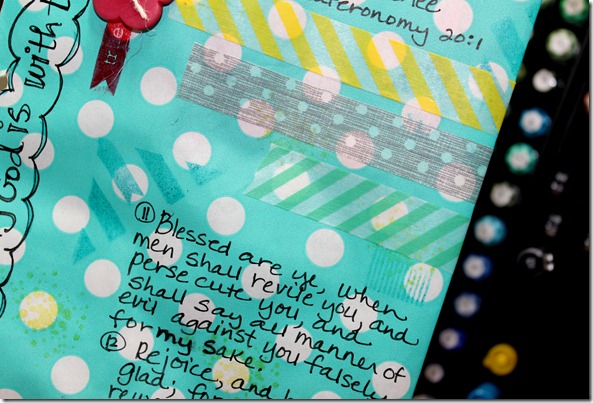 God is with
20:1
⑪ Blessed are ye, when
men shall revile you, and
persecute you, and
shall say all manner of
evil against you falsely
for my sake:
⑫ Rejoice, and
glad; for